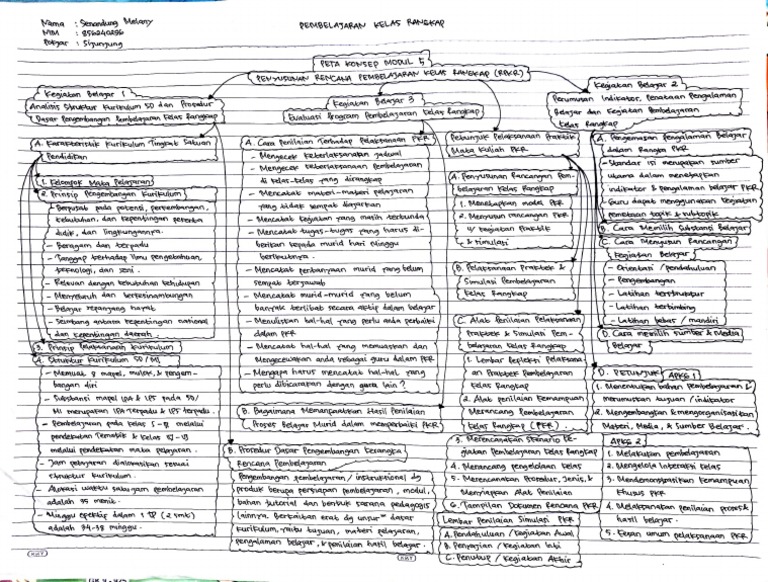 Nama : Senandung Melany
NIM : 856240296
Pokjar : Sijunjung
PEMBELAJARAN KELAS RANGKAP
PETA KONSEP MODUL 5
PENYUSUNAN RENCANA PEMBELAJARAN KELAS RANGKAP (RPKR)
Kegiatan Belajar 1
Analisis Struktur Kurikulum SD dan Prosedur
Dasar Pengembangan Pembelajaran Kelas Rangkap
A. Karakteristik Kurikulum Tingkat Satuan
Pendidikan
1. Kelompok Mata Pelajaran
2. Prinsip Pengembangan Kurikulum
- Berpusat pada potensi, perkembangan,
kebutuhan, dan kepentingan peserta
didik, dan lingkungannya.
- Beragam dan terpadu
- Tanggap terhadap Ilmu pengetahuan,
teknologi, dan seni.
- Relevan dengan kebutuhan kehidupan
- Menyeluruh dan berkesinambungan
- Belajar sepanjang hayat
- Seimbang antara kepentingan nasional
dan kepentingan daerah
3. Prinsip Pelaksanaan Kurikulum
4. Struktur Kurikulum SD/MI
- Memuat 8 mapel, mulok, & pengem-
bangan diri
- Substansi mapel IPA & IPS pada SD/
MI merupakan IPA Terpadu & IPS terpadu.
- Pembelajaran pada kelas
pendekatan Tematik & Kelas
melalui pendekatan mata pelajaran.
- Jam pelajaran dialokasikan sesuai
struktur kurikulum.
- Alokasi waktu satu jam pembelajaran
adalah 35 menit.
- Minggu efektif dalam 1 TP (2 smt)
adalah 34-38 minggu.
Kegiatan Belajar 3
Evaluasi Program Pembelajaran Kelas Rangkap
A. Cara Penilaian Terhadap Pelaksanaan PKR
- Mengecek keterlaksanaan jadwal
- Mengecek keterlaksanaan Pembelajaran
di kelas-kelas yang dirangkap
- Mencatat materi-materi pelajaran
yang tidak sempat diajarkan
- Mencatat kegiatan yang masih tertunda
- Mencatat tugas-tugas yang harus di-
berikan kepada murid hari/minggu
berikutnya.
- Mencatat pertanyaan murid yang belum
sempat terjawab
- Mencatat murid-murid yang belum
banyak terlibat secara aktif dalam belajar
- Menuliskan hal-hal yang perlu anda perbaiki
dalam PKR
- Mencatat hal-hal yang memuaskan dan
Mengecewakan anda sebagai guru dalam PKR
- Mengapa harus mencatat hal-hal yang
perlu dibicarakan dengan guru lain?
B. Bagaimana Memanfaatkan Hasil Penilaian
Proses Belajar Murid dalam memperbaiki PKR
B. Prosedur Dasar Pengembangan kerangka
Rencana Pembelajaran
Pengembangan pembelajaran / instruksional dg
produk berupa persiapan pembelajaran, modul,
bahan tutorial dan bentuk sarana pedagogis
lainnya. Berkaitan erat dg unsur² dasar
kurikulum, yaitu tujuan, materi pelajaran,
pengalaman belajar, & penilaian hasil belajar.
Petunjuk Pelaksanaan Praktik
Mata Kuliah PKR
A. Penyusunan Rancangan Pem-
belajaran Kelas Rangkap
1. Menetapkan model PKR
2. Menyusun rancangan PKR
u/ kegiatan praktik
& simulasi
B. Pelaksanaan Praktek &
Simulasi Pembelajaran
Kelas Rangkap
C. Alat Penilaian Pelaksanaan
Praktek & Simulasi Pem-
belajaran Kelas Rangkap
1. Lembar Refleksi Pelaksana-
an Praktek Pembelajaran
Kelas Rangkap
2. Alat penilaian Kemampuan
Merancang Pembelajaran
Kelas Rangkap (PKR).
3. Merencanakan Skenario Ke-
giatan Pembelajaran Kelas Rangkap
4. Merancang pengelolaan kelas
5. Merencanakan Prosedur, Jenis, &
Menyiapkan Alat Penilaian
6. Tampilan Dokumen Rencana PKR
Lembar Penilaian Simulasi PKR
A. Pendahuluan / Kegiatan Awal
B. Penyajian / Kegiatan Inti
C. Penutup / Kegiatan Akhir
Kegiatan Belajar 2
Perumusan Indikator, Penataan Pengalaman
Belajar dan Kegiatan Pembelajaran
Kelas Rangkap
A. Pengemasan Pengalaman Belajar
dalam Rangka PKR
- Standar isi merupakan sumber
utama dalam menetapkan
indikator & pengalaman belajar PKR
- Guru dapat menggunakan kegiatan
pemetaan topik & subtopik
B. Cara Memilih Substansi Belajar
C. Cara Menyusun Rancangan
Kegiatan Belajar
- Orientasi / pendahuluan
- Pengembangan
- Latihan terstruktur
- Latihan terbimbing
- Latihan bebas / mandiri
D. Cara memilih Sumber & Media
Belajar
D. PETUNJUK APKG 1
1. Menentukan bahan Pembelajaran &
merumuskan tujuan / indikator
2. Mengembangkan & mengorganisasikan
Materi, Media, & Sumber Belajar.
APKG 2
1. Melakukan pembelajaran
2. Mengelola Interaksi kelas
3. Mendemonstrasikan Kemampuan
Khusus PKR
4. Melaksanakan penilaian proses &
hasil belajar.
5. Kesan umum pelaksanaan PKR